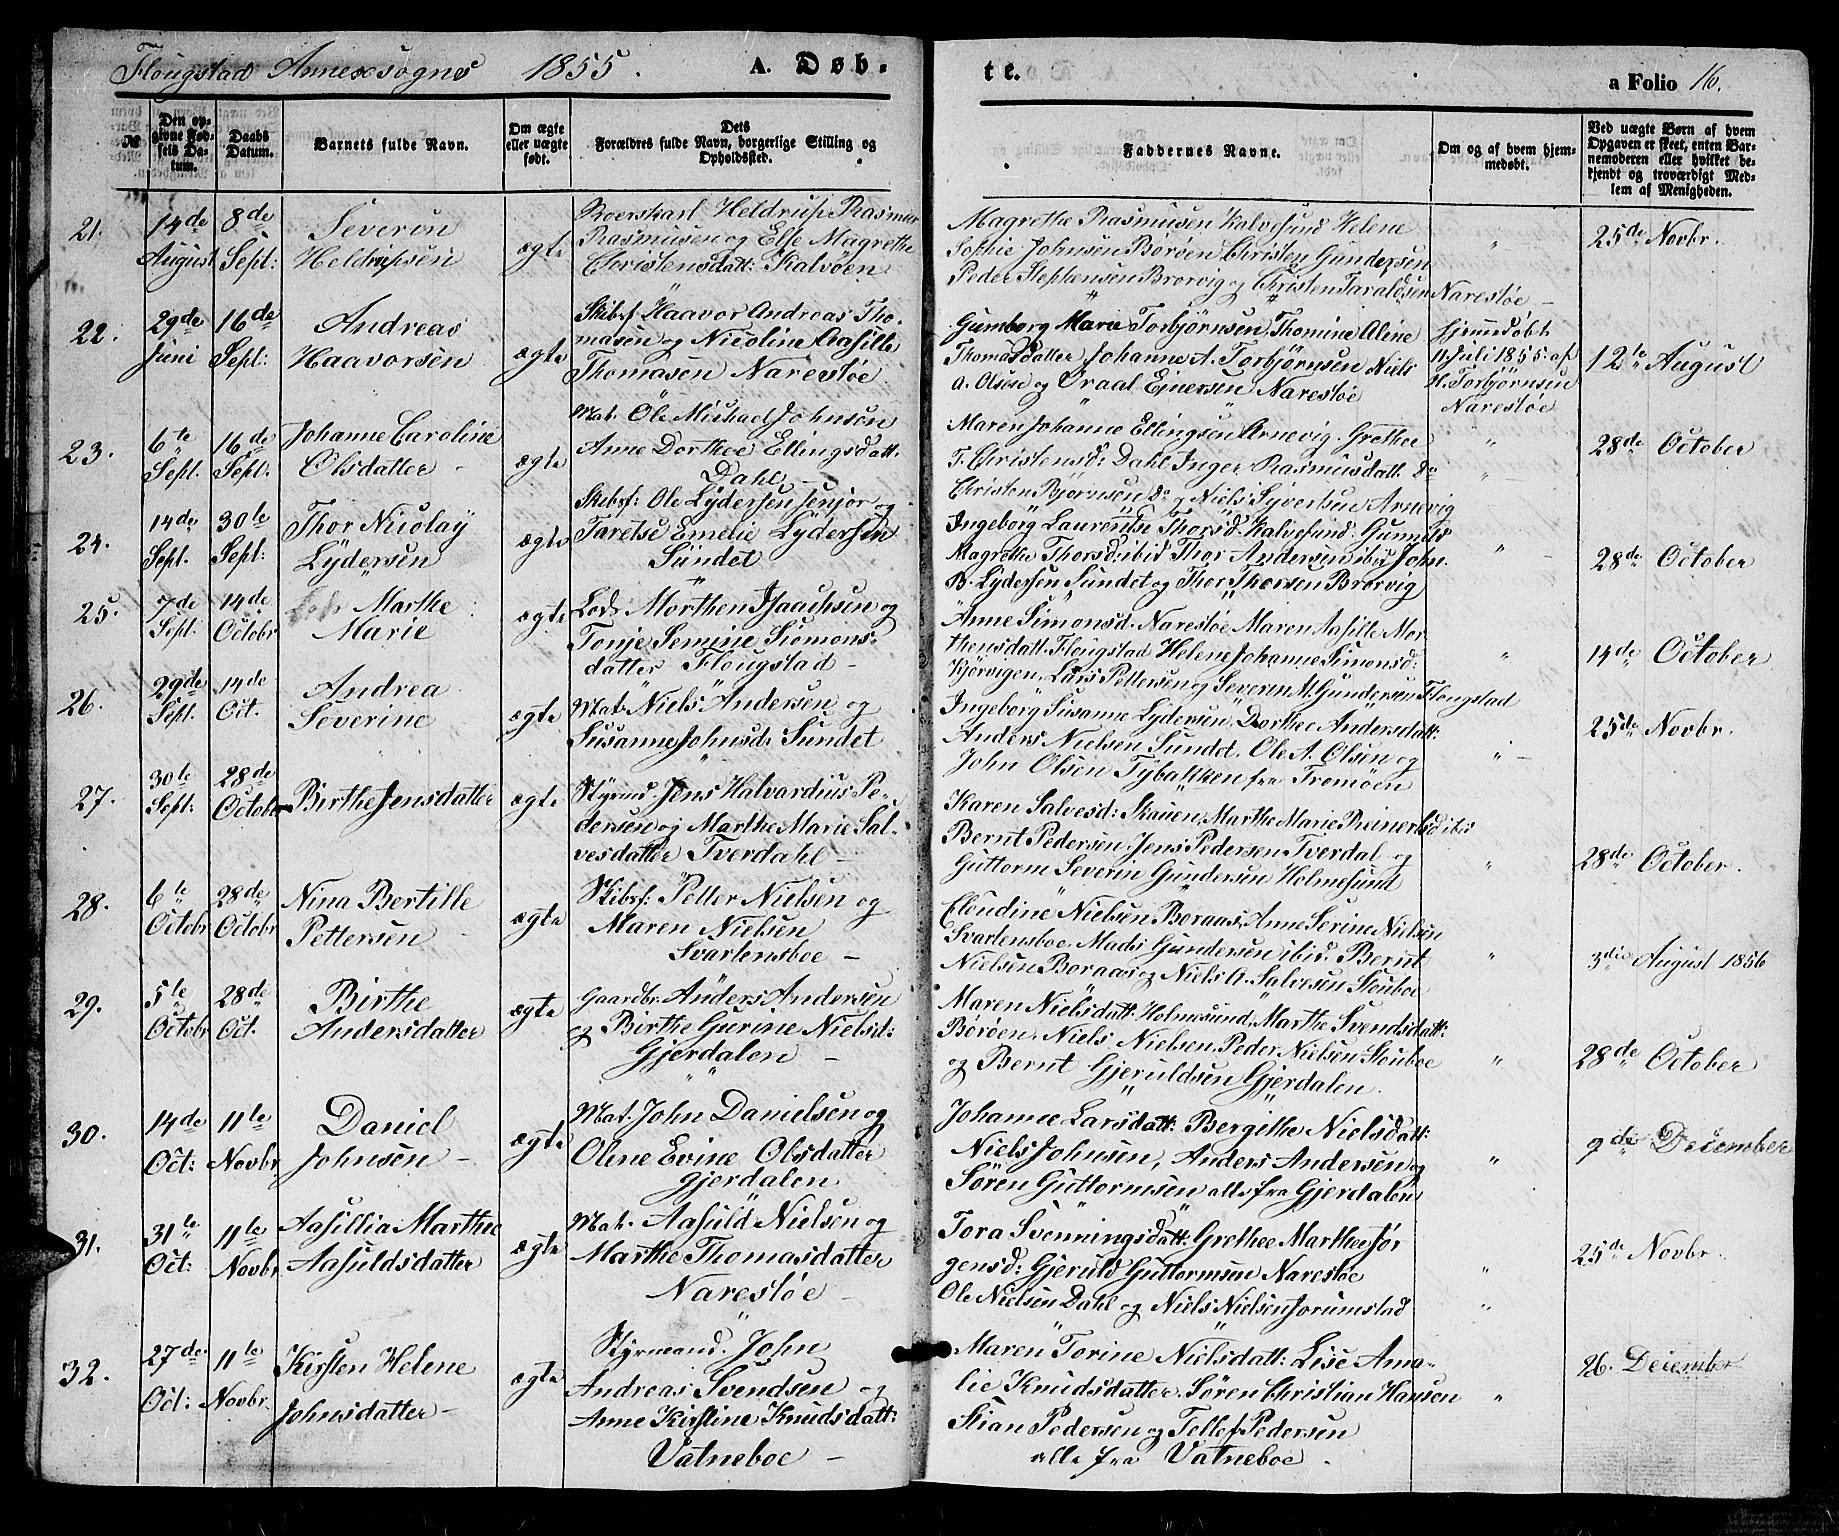 Flougstad Annexsogns 1855. A. Døb-
te.
a Folio 16.
№
Den op-
givne Fød-
sels Da-
tum.
Daabs
Datum.
Barnets fulde Navn.
Om ægte
eller uægte
født.
Dets
Forældres fulde Navn, borgerlige Stilling og
Opholdssted.
Faddernes Navne.
Om og af hvem hjem-
medøbt.
Ved uægte Børn af hvem
Opgaven er skeet, enten Bar-
nemoderen eller hvilket be-
kjendt og troværdigt Med-
lem af Menigheden.
21.
14de
August
8de
Sept:
Severin
Heldrupsen
ægte
Heldrup Rasmus
Rasmusen og Else Magrethe
Christensdatt: Kalvøen
Magrethe Rasmusen Kalvesund Helene
Sophie Johnsen Borøen Christen Gundersen
Peder Stephensen Brorvig og Christen Taraldsen Narestøe
"
25de Novbr.
22.
29de
Juni
16de
Sept:
Andreas
Haavorsen
ægte
Skibsf Haavor Andreas Tho-
masen og Nicoline Aasille
Thomasen Narestøe
Gumborg Marie Torbjørnsen, Thomine Aline
Thomasdatter Johanne A. Torbjørnsen Niels
A. Olsen og Oraal Einersen Narestøe
Hjemmedøbt
11 Juli 1855 af
N. Torbjørnsen
Narestøe
12te August
23.
6te
Sept.
16de
Sept:
Johanne Caroline
Olsdatter
ægte
Mat. Ole Michael Johnsen
Anne Dorthee Ellingsdatt.
Dahl
Maren Johanne Ellingsen Arnevig. Grethe
T. Christensd: Dahl Inger Rasmusdatt. Do
Christen Bjørnsen Do og Niels Syvertsen Arnevig
"
28de October
24.
14de
Sept.
30te
Sept:
Thor Nicolay
Lydersen
ægte
Skibsf: Ole Lydersen senjor og
Taretse Emelie Lydersen
Sundet
Ingeborg Laurentse Thorsd. Kalvesund. Gunnels
Magrethe Thorsd: ibid Thor Andersen ibid John
B. Lydersen Sundet og Thor Thorsen Brorvig
"
28de October
25.
7de
Sept.
14de
Octobr
Marthe
Marie
ægte
Lods Morthen Isaachsen og
Tonje Semine Siomons-
datter Flougstad
Anne Simonsd. Narestøe Maren Aasille Mor
thensdatt. Flougstad Helene Johanne Simonsd:
Kjørvigen, Lars Pettersen og Severin N. Gundersen Flougstad
"
14de October
26.
29de
Sept.
14de
Oct.
Andrea
Severine
ægte
Mat. Niels Andersen og
Susanne Johnsd. Sundet
Ingeborg Susanne Lydersen, Dorthee Andersdatt:
Anders Nielsen Sundet. Ole A. Olsen og
John Olsen Tybakken fra Tromøen
"
25de Novbr.
27.
30te
Sept:
28de
October
Birthe Jensdatter
ægte
Styrmd. Jens Halvardius Pe-
dersen og Marthe Marie Sal-
vesdatter Tverdahl
Karen Salvesd: Skauen, Marthe Marie Reinertsd ibid
Bernt Pedersen, Jens Pedersen Tverdal og
Guttorm Severin Gundersen Holmesund
"
28de October.
28.
6te
Octobr
28de
October
Nina Bertille
Pettersen
ægte
Skibsf: Petter Nielsen og
Maren Nielsen
Svartensboe
Cloudine Nielsen Boraas, Anne Serine Nielsen
Svartensboe. Mads Gundersen ibid. Bernt
Nielsen Boraas og Niels A. Salvesen Skuboe
"
3die August 1856
29.
5te
Octobr
28de
Oct.
Birthe
Andersdatter
ægte
Gaardbr. Anders Andersen
og Birthe Gurine Nielsd:
Gjerdalen
Maren Nielsdatt: Holmesund, Marthe Svendsdatt:
Børøen. Niels Nielsen, Peder Nielsen Skuboe
og Bernt Gjeruldsen Gjerdalen
"
28de October
30.
14de
Oct:
11te
Novbr
Daniel
Johnsen
ægte
Mat. John Danielsen og
Oline Evine Olsdatter
Gjerdalen
Johanne Larsdatt: Bergithe Nielsdatt:
Niels Johnsen, Anders Andersen og
Søren Guttormsen alle fra Gjerdalen
"
9de December
31.
31te
Oct:
11te
Novbr
Aasillia Marthee
Aasuldsdatter
ægte
Mat. Aasuld Nielsen og
Marthe Thomasdatter
Narestøe
Tora Svenningsdatt. Grethee Marthee Jør
gensd: Gjeruld Guttormsen Narestøe
Ole Nielsen Dahl og Niels Nielsen Jorumstad
"
25de Novbr.
32.
27de
Oct:
11te
Novbr.
Kirsten Helene
Johnsdatter
ægte
Styrmand. John
Andreas Svendsen og
Anne Kirstine Knudsdatt:
Vatneboe
Maren Torine Nielsdatt: Lise Ama-
lie Knudsdatter. Søren Christian Hansen
Stian Pedersen og Tellef Pedersen
alle fra Vatneboe.
"
26. December